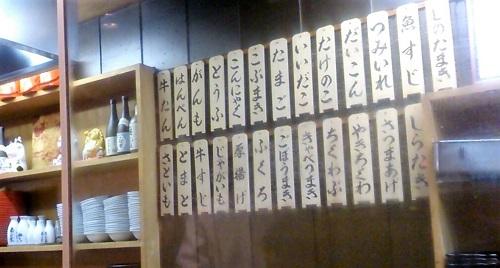 しのたまき
魚すじ
つみいれ
だいこん
たけのこ
いいだこ
たまご
こぶまき
こんにゃく
とうふ
がんも
はんぺん
牛たん
しらたき
さつまあげ
やきちくわ
ちくわぶ
きゃべつまき
ごぼうまき
ふくろ
厚揚げ
じゃがいも
牛すじ
とまと
さといも